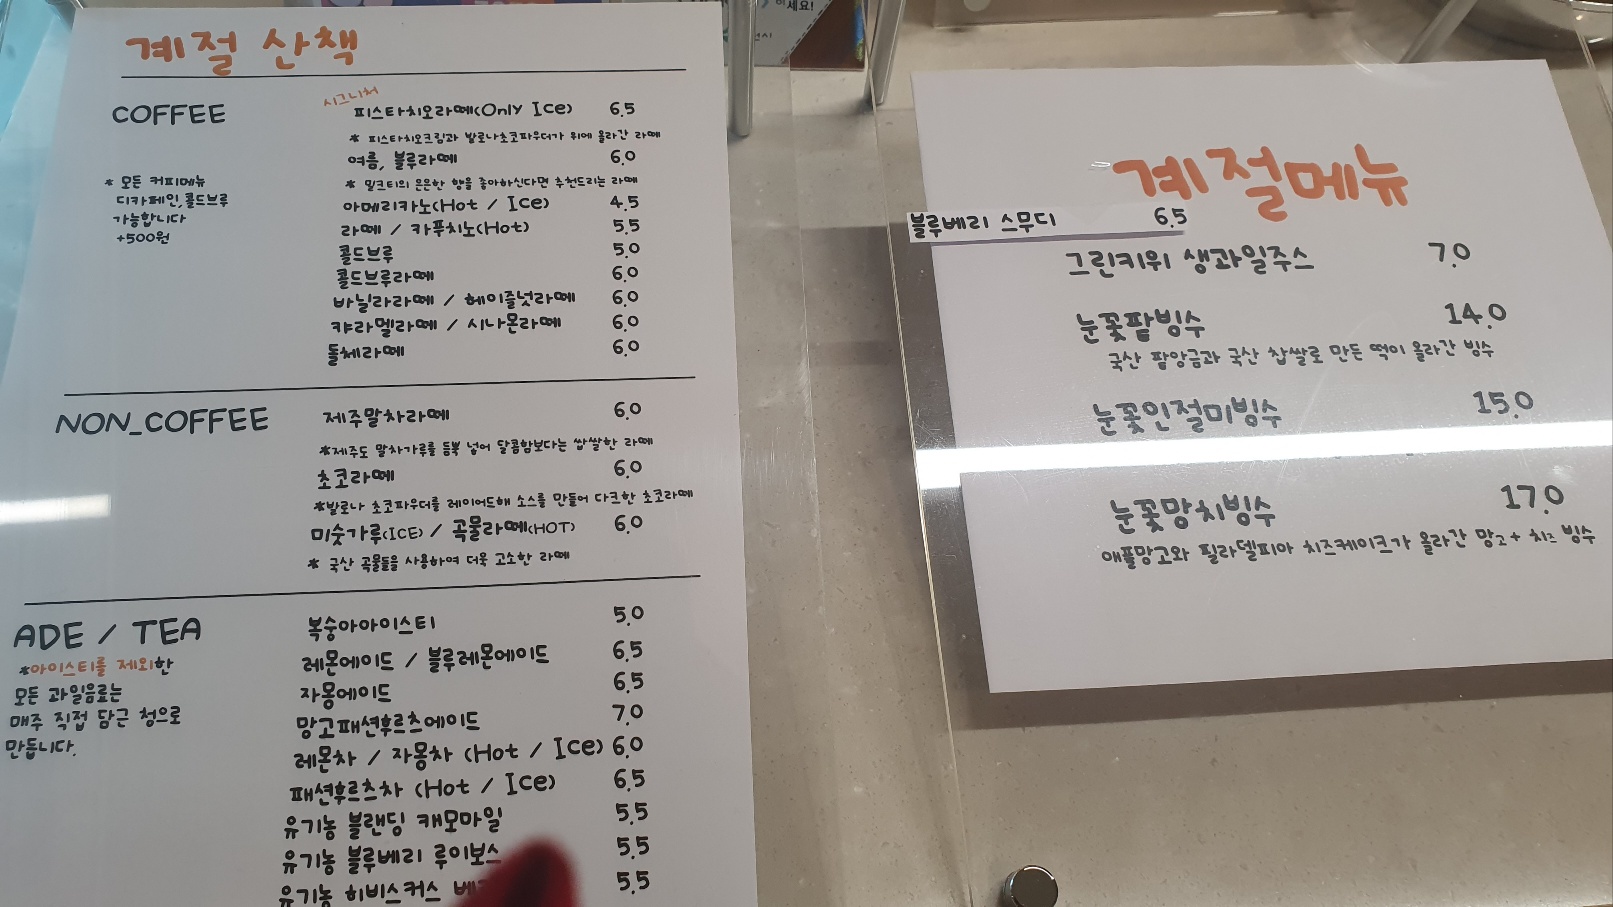 계절 산책
COFFEE
* 모든 커피메뉴
디카페인, 콜드브루
가능합니다
+500원
시그니처
피스타치오라떼(Only Ice) 6.5
* 피스타치오크림과 발로나초코파우더가 위에 올라간 라떼
여름, 블루라떼 6.0
* 밀크티의 은은한 향을 좋아하신다면 추천드리는 라떼
아메리카노(Hot / Ice) 4.5
라떼 / 카푸치노(Hot) 5.5
콜드브루 5.0
콜드브루라떼 6.0
바닐라라떼 / 헤이즐넛라떼 6.0
캬라멜라떼 / 시나몬라떼 6.0
돌체라떼 6.0
NON_COFFEE
제주말차라떼 6.0
*제주도 말차가루를 듬뿍 넣어 달콤함보다는 쌉쌀한 라떼
초코라떼 6.0
*발로나 초코파우더를 레이어드해 소스를 만들어 다크한 초코라떼
미숫가루(ICE) / 곡물라떼(HOT) 6.0
* 국산 곡물들을 사용하여 더욱 고소한 라떼
ADE / TEA
*아이스티를 제외한
모든 과일음료는
매주 직접 담근 청으로
만듭니다.
복숭아아이스티 5.0
레몬에이드 / 블루레몬에이드 6.5
자몽에이드 6.5
망고패션후르츠에이드 7.0
레몬차 / 자몽차 (Hot / Ice) 6.0
패션후르츠차 (Hot / Ice) 6.5
유기농 블랜딩 캐모마일 5.5
유기농 블루베리 루이보스 5.5
유기농 히비스커스 5.5
계절메뉴
블루베리 스무디 6.5
그린키위 생과일주스 7.0
눈꽃팥빙수 14.0
국산 팥앙금과 국산 찹쌀로 만든 떡이 올라간 빙수
눈꽃인절미빙수 15.0
눈꽃망치빙수 17.0
애플망고와 필라델피아 치즈케이크가 올라간 망고+ 치즈 빙수